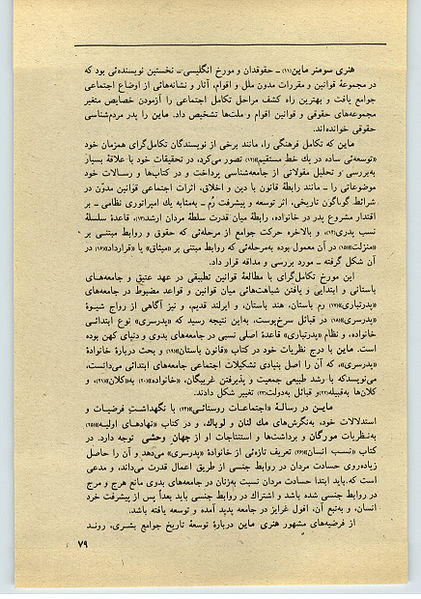 هنری سومنر ماین(۱۱) ـ حقوقدان و مورخ انگلیسی ـ نخستین نویسنده‌ئی بود که
در مجموعهٔ قوانین و مقررات مدون ملل و اقوام، آثار و نشانه‌هائی از اوضاع اجتماعی
جوامع یافت و بهترین راه کشف مراحل تکامل اجتماعی را آزمودن خصایص متغیر
مجموعه‌های حقوقی و قوانین اقوام و ملت‌ها تشخیص داد. ماین را پدر مردم‌شناسی
حقوقی خوانده‌اند.
ماین که تکامل فرهنگی را، مانند برخی از نویسندگان تکامل‌گرای همزمان خود
«توسعه‌ئی ساده در یک خط مستقیم»(۱۲) تصور می‌کرد، در تحقیقات خود با علاقهٔ بسیار
به‌بررسی و تحلیل مقولاتی از جامعه‌شناسی پرداخت و در کتاب‌ها و رسالات خود
موضوعاتی را ـ مانند رابطهٔ قانون با دین و اخلاق، اثرات اجتماعی قوانین مدوّن در
شرائط گوناگون تاریخی، اثر توسعه و پیشرفت رُم ـ به‌مثابه یک امپراتوری نظامی ـ بر
اقتدار مشروع پدر در خانواده، رابطهٔ میان قدرت سلطهٔ مردان ارشد(۱۳)، قاعدهٔ سلسلهٔ
نسب پدری(۱۴)، و بالاخره حرکت جوامع از مرحله‌ئی که حقوق و روابط مبتنی بر
«منزلت»(۱۵) در آن معمول بوده به‌مرحله‌ئی که روابط مبتنی بر «میثاق» یا «قرارداد»(۱۶) در
آن شکل گرفته ـ مورد بررسی و مداقه قرار داد.
این مورخ تکامل‌گرای با مطالعهٔ قوانین تطبیقی در عهد عتیق و جامعه‌های
باستانی و ابتدایی و یافتن شباهت‌هائی میان قوانین و قواعد مضبوط در جامعه‌های
«پدرتباری»(۱۷) رم باستان، هند باستان، و ایرلند قدیم، و نیز آگاهی از رواج شیوهٔ
«پدرسری»(۱۸) در قبائل سرخ‌پوست، به‌این نتیجه رسید که «پدرسری» نوع ابتدائی
خانواده، و نظام «پدرتباری» قاعدهٔ اصلی نسبی در جامعه‌های بدوی و دنیای کهن بوده
است. ماین با درج نظریات خود در کتاب «قانون باستان»(۱۹) و بحث دربارهٔ خانوادهٔ
«پدرسری»، که آن را اصل بنیادی تشکیلات اجتماعی جامعه‌های ابتدائی می‌دانست،
می‌نویسد که با رشد طبیعی جمعیت و پذیرفتن غریبگان، «خانواده»(۲۰) به«کلان»(۲۱)، و
کلان‌ها به‌قبیله(۲۲) و قبائل به‌دولت(۲۳) تغییر شکل دادند.
ماین در رسالهٔ «اجتماعات روستائی»(۲۴) با نگهداشتِ فرضیات و
استدلالات خود، به‌نگرش‌های مك لنان و لوباك، و در کتاب «نهادهای اولیه»(۲۵)
به‌نظریات مورگان و برداشت‌ها و استنتاجات او از جهان وحشی توجه دارد. در
کتاب «نسب انسان»(۲۶) تعریف تازه‌ئی از خانوادهٔ «پدرسری» می‌دهد و آن را حاصل
زیاده‌روی حسادت مردان در روابط جنسی از طریق اعمال قدرت می‌داند، و مدعی
است که باید ابتدا حسادت مردان نسبت به‌زنان در جامعه‌های بدوی مانع هرج و مرج
در روابط جنسی شده باشد و اشتراك در روابط جنسی باید بعداً پس از پیشرفت خرد
انسان، و به‌تبع آن، افول غرایز در جامعه پدید آمده و توسعه یافته باشد.
از فرضیه‌های مشهور هنری ماین دربارهٔ توسعهٔ تاریخ جوامع بشری، روند
۷۹